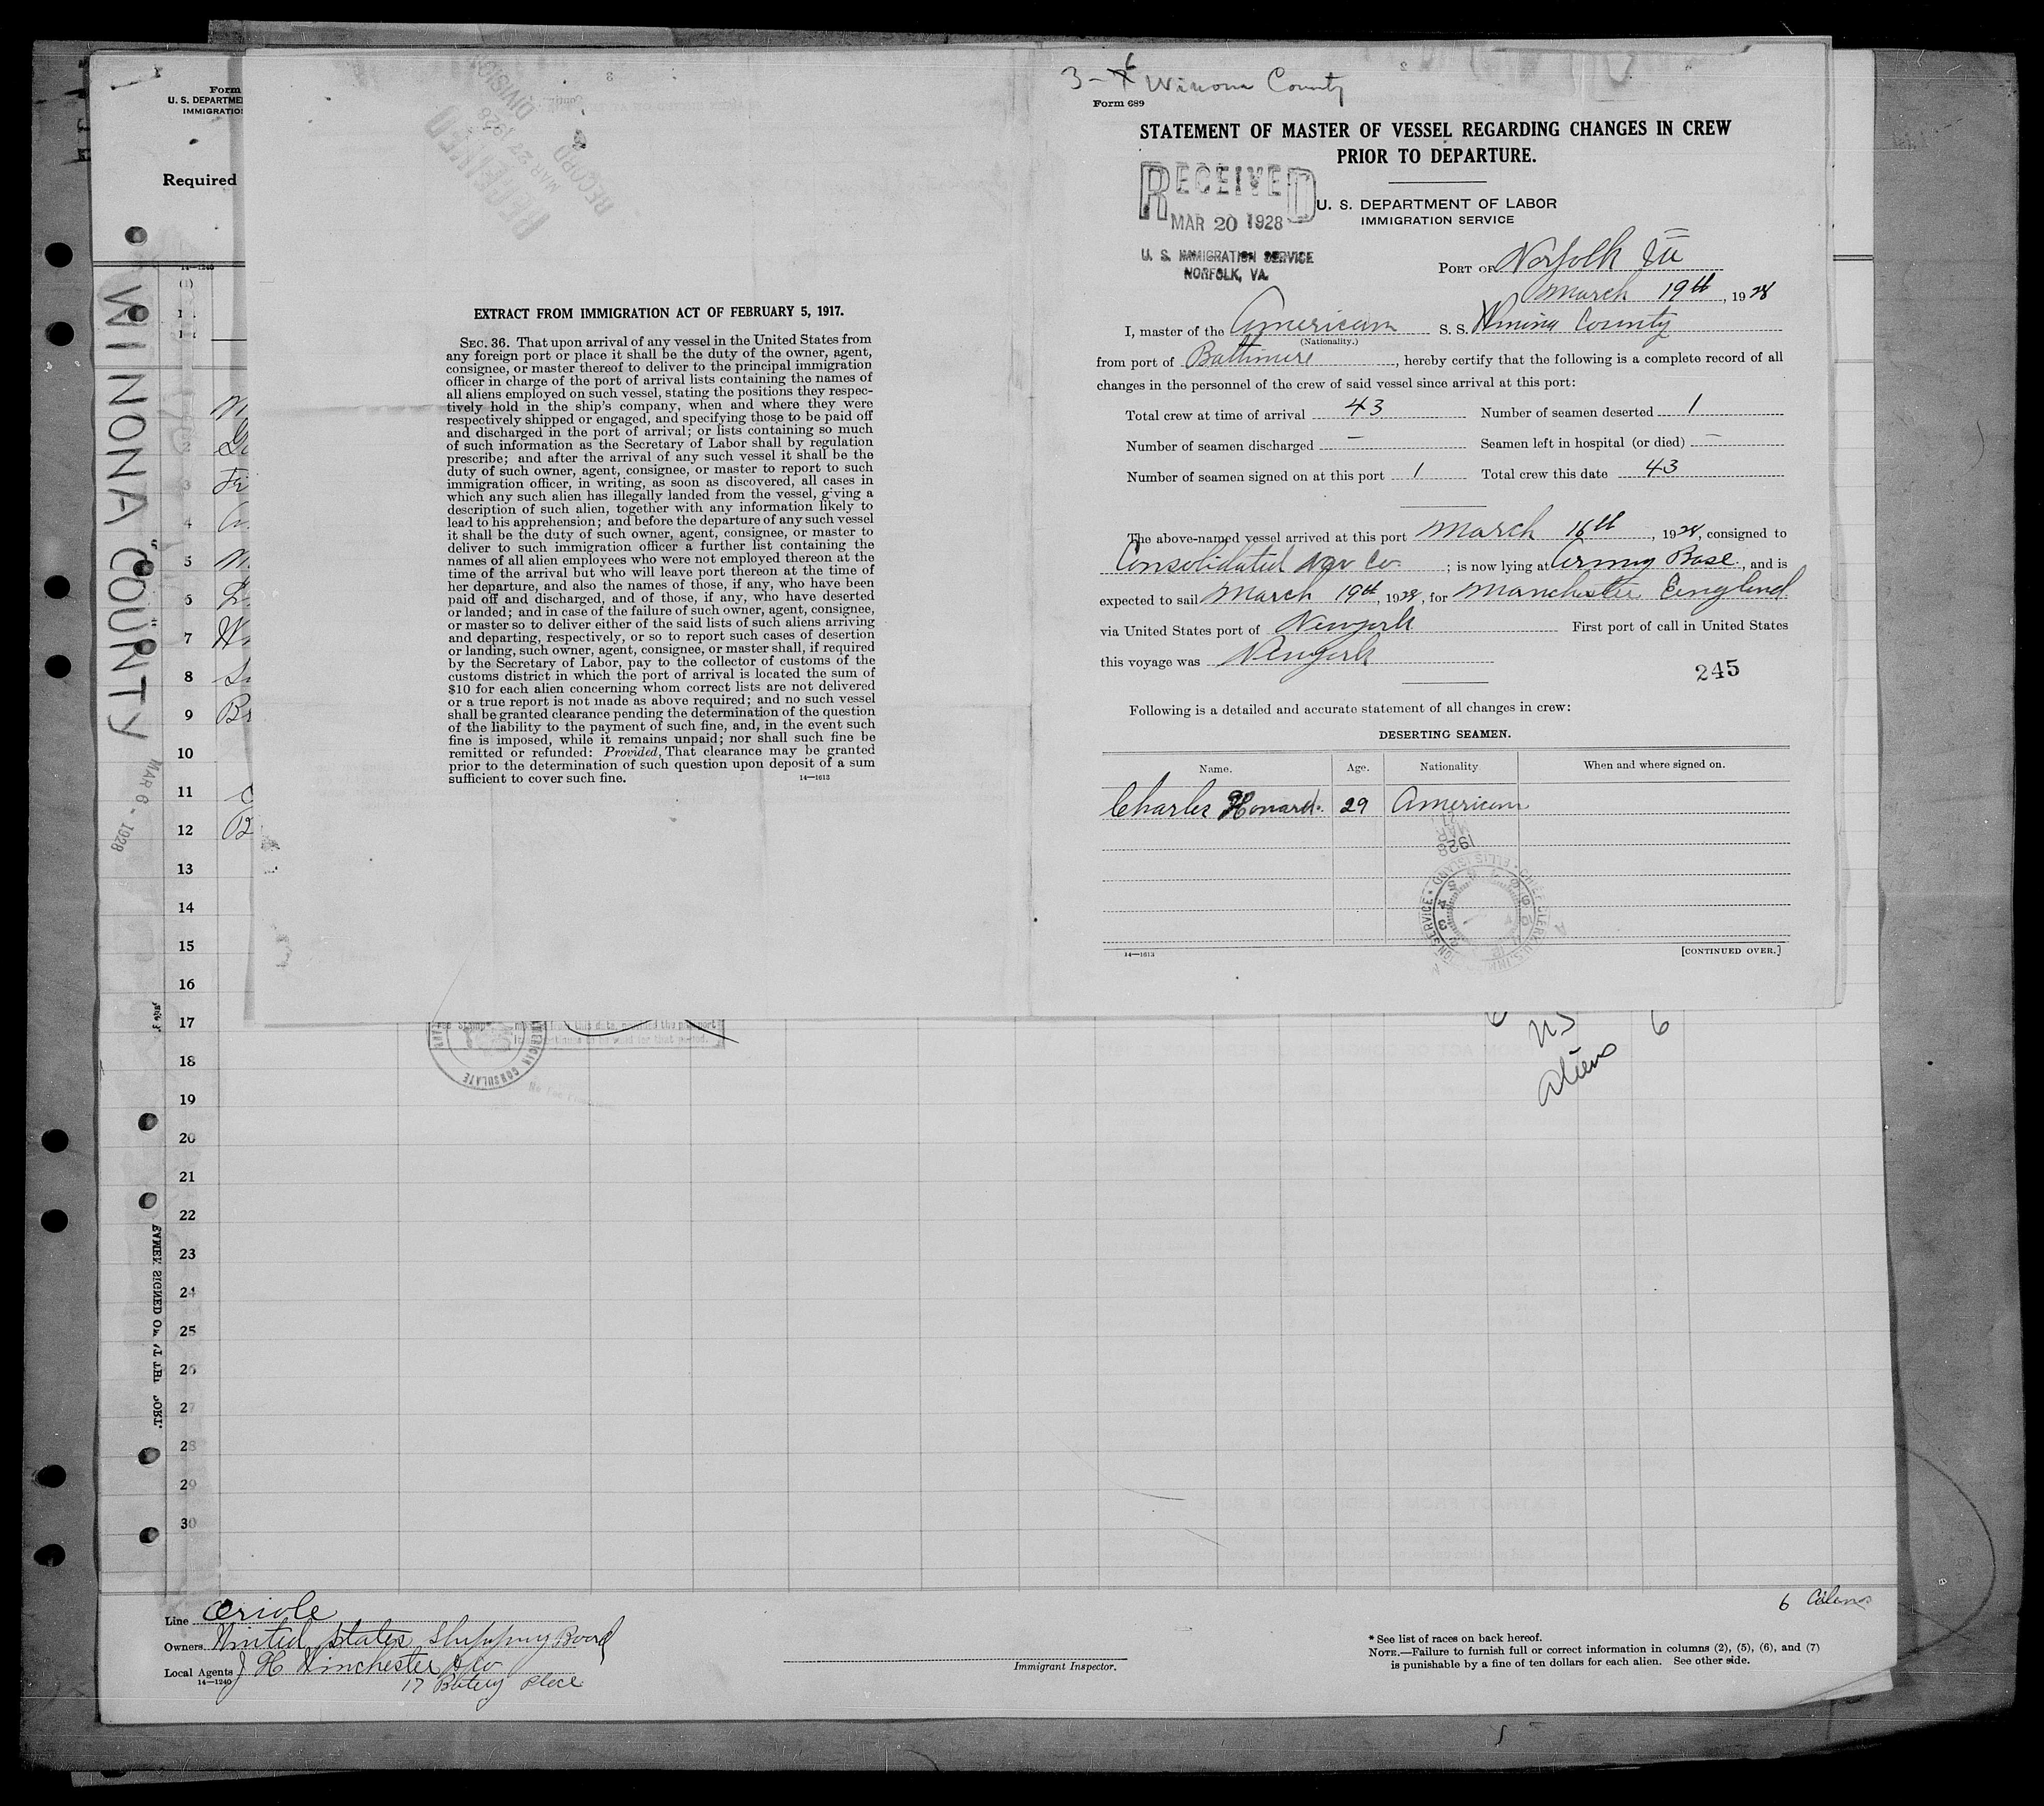 Form
U. S. DEPARTME
IMMIGRATIO
Required
WINONA COUNTY
MAR 6 - 1928
14—1240
1
2
3
4
5
6
7
8
9
10
11
12
13
14
15
16
17
18
19
20
21
22
23
24
25
26
27
28
29
30
RECEIVED
MAR 27 1928
RECORD DIVISION
EXTRACT FROM IMMIGRATION ACT OF FEBRUARY 5, 1917.
SEC. 36. That upon arrival of any vessel in the United States from
any foreign port or place it shall be the duty of the owner, agent,
consignee, or master thereof to deliver to the principal immigration
officer in charge of the port of arrival lists containing the names of
all aliens employed on such vessel, stating the positions they respec-
tively hold in the ship's company, when and where they were
respectively shipped or engaged, and specifying those to be paid off
and discharged in the port of arrival; or lists containing so much
of such information as the Secretary of Labor shall by regulation
prescribe; and after the arrival of any such vessel it shall be the
duty of such owner, agent, consignee, or master to report to such
immigration officer, in writing, as soon as discovered, all cases in
which any such alien has illegally landed from the vessel, giving a
description of such alien, together with any information likely to
lead to his apprehension; and before the departure of any such vessel
it shall be the duty of such owner, agent, consignee, or master to
deliver to such immigration officer a further list containing the
names of all alien employees who were not employed thereon at the
time of the arrival but who will leave port thereon at the time of
her departure, and also the names of those, if any, who have been
paid off and discharged, and of those, if any, who have deserted
or landed; and in case of the failure of such owner, agent, consignee,
or master so to deliver either of the said lists of such aliens arriving
and departing, respectively, or so to report such cases of desertion
or landing, such owner, agent, consignee, or master shall, if required
by the Secretary of Labor, pay to the collector of customs of the
customs district in which the port of arrival is located the sum of
$10 for each alien concerning whom correct lists are not delivered
or a true report is not made as above required; and no such vessel
shall be granted clearance pending the determination of the question
of the liability to the payment of such fine, and, in the event such
fine is imposed, while it remains unpaid; nor shall such fine be
remitted or refunded: Provided, That clearance may be granted
prior to the determination of such question upon deposit of a sum
sufficient to cover such fine. 14—1613
3-6 Winona County
Form 689
STATEMENT OF MASTER OF VESSEL REGARDING CHANGES IN CREW
PRIOR TO DEPARTURE.
RECEIVED
MAR 20 1928
U. S. IMMIGRATION SERVICE
NORFOLK, VA.
U. S. DEPARTMENT OF LABOR
IMMIGRATION SERVICE
PORT OF Norfolk
March 19th, 1928
I, master of the American S. S. Winona County
(Nationality.)
from port of Baltimore, hereby certify that the following is a complete record of all
changes in the personnel of the crew of said vessel since arrival at this port:
Total crew at time of arrival 43 Number of seamen deserted 1
Number of seamen discharged — Seamen left in hospital (or died) —
Number of seamen signed on at this port 1 Total crew this date 43
The above-named vessel arrived at this port March 16th, 1928, consigned to
Consolidated Nav Co; is now lying at Army Base, and is
expected to sail March 19th, 1928, for Manchester England
via United States port of Newyork First port of call in United States
this voyage was Newyork
245
Following is a detailed and accurate statement of all changes in crew:
DESERTING SEAMEN.
Name. Age. Nationality. When and where signed on.
Charles Honard. 29 American
MAR 1928
14—1613
[CONTINUED OVER.]
from this date, provided the passport
continues to be valid for that period.
AMERICAN CONSULATE
US 6
Aliens
6 Aliens
Line Oriole
Owners United States Shipping Board
Local Agents J H Winchester & Co
14—1240
17 Battery Place
Immigrant Inspector.
* See list of races on back hereof.
NOTE.—Failure to furnish full or correct information in columns (2), (5), (6), and (7)
is punishable by a fine of ten dollars for each alien. See other side.